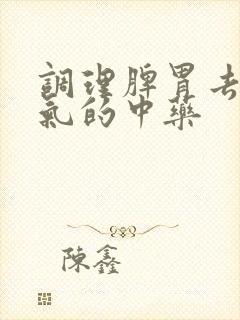 調理脾胃去
氣的中藥
陳鑫